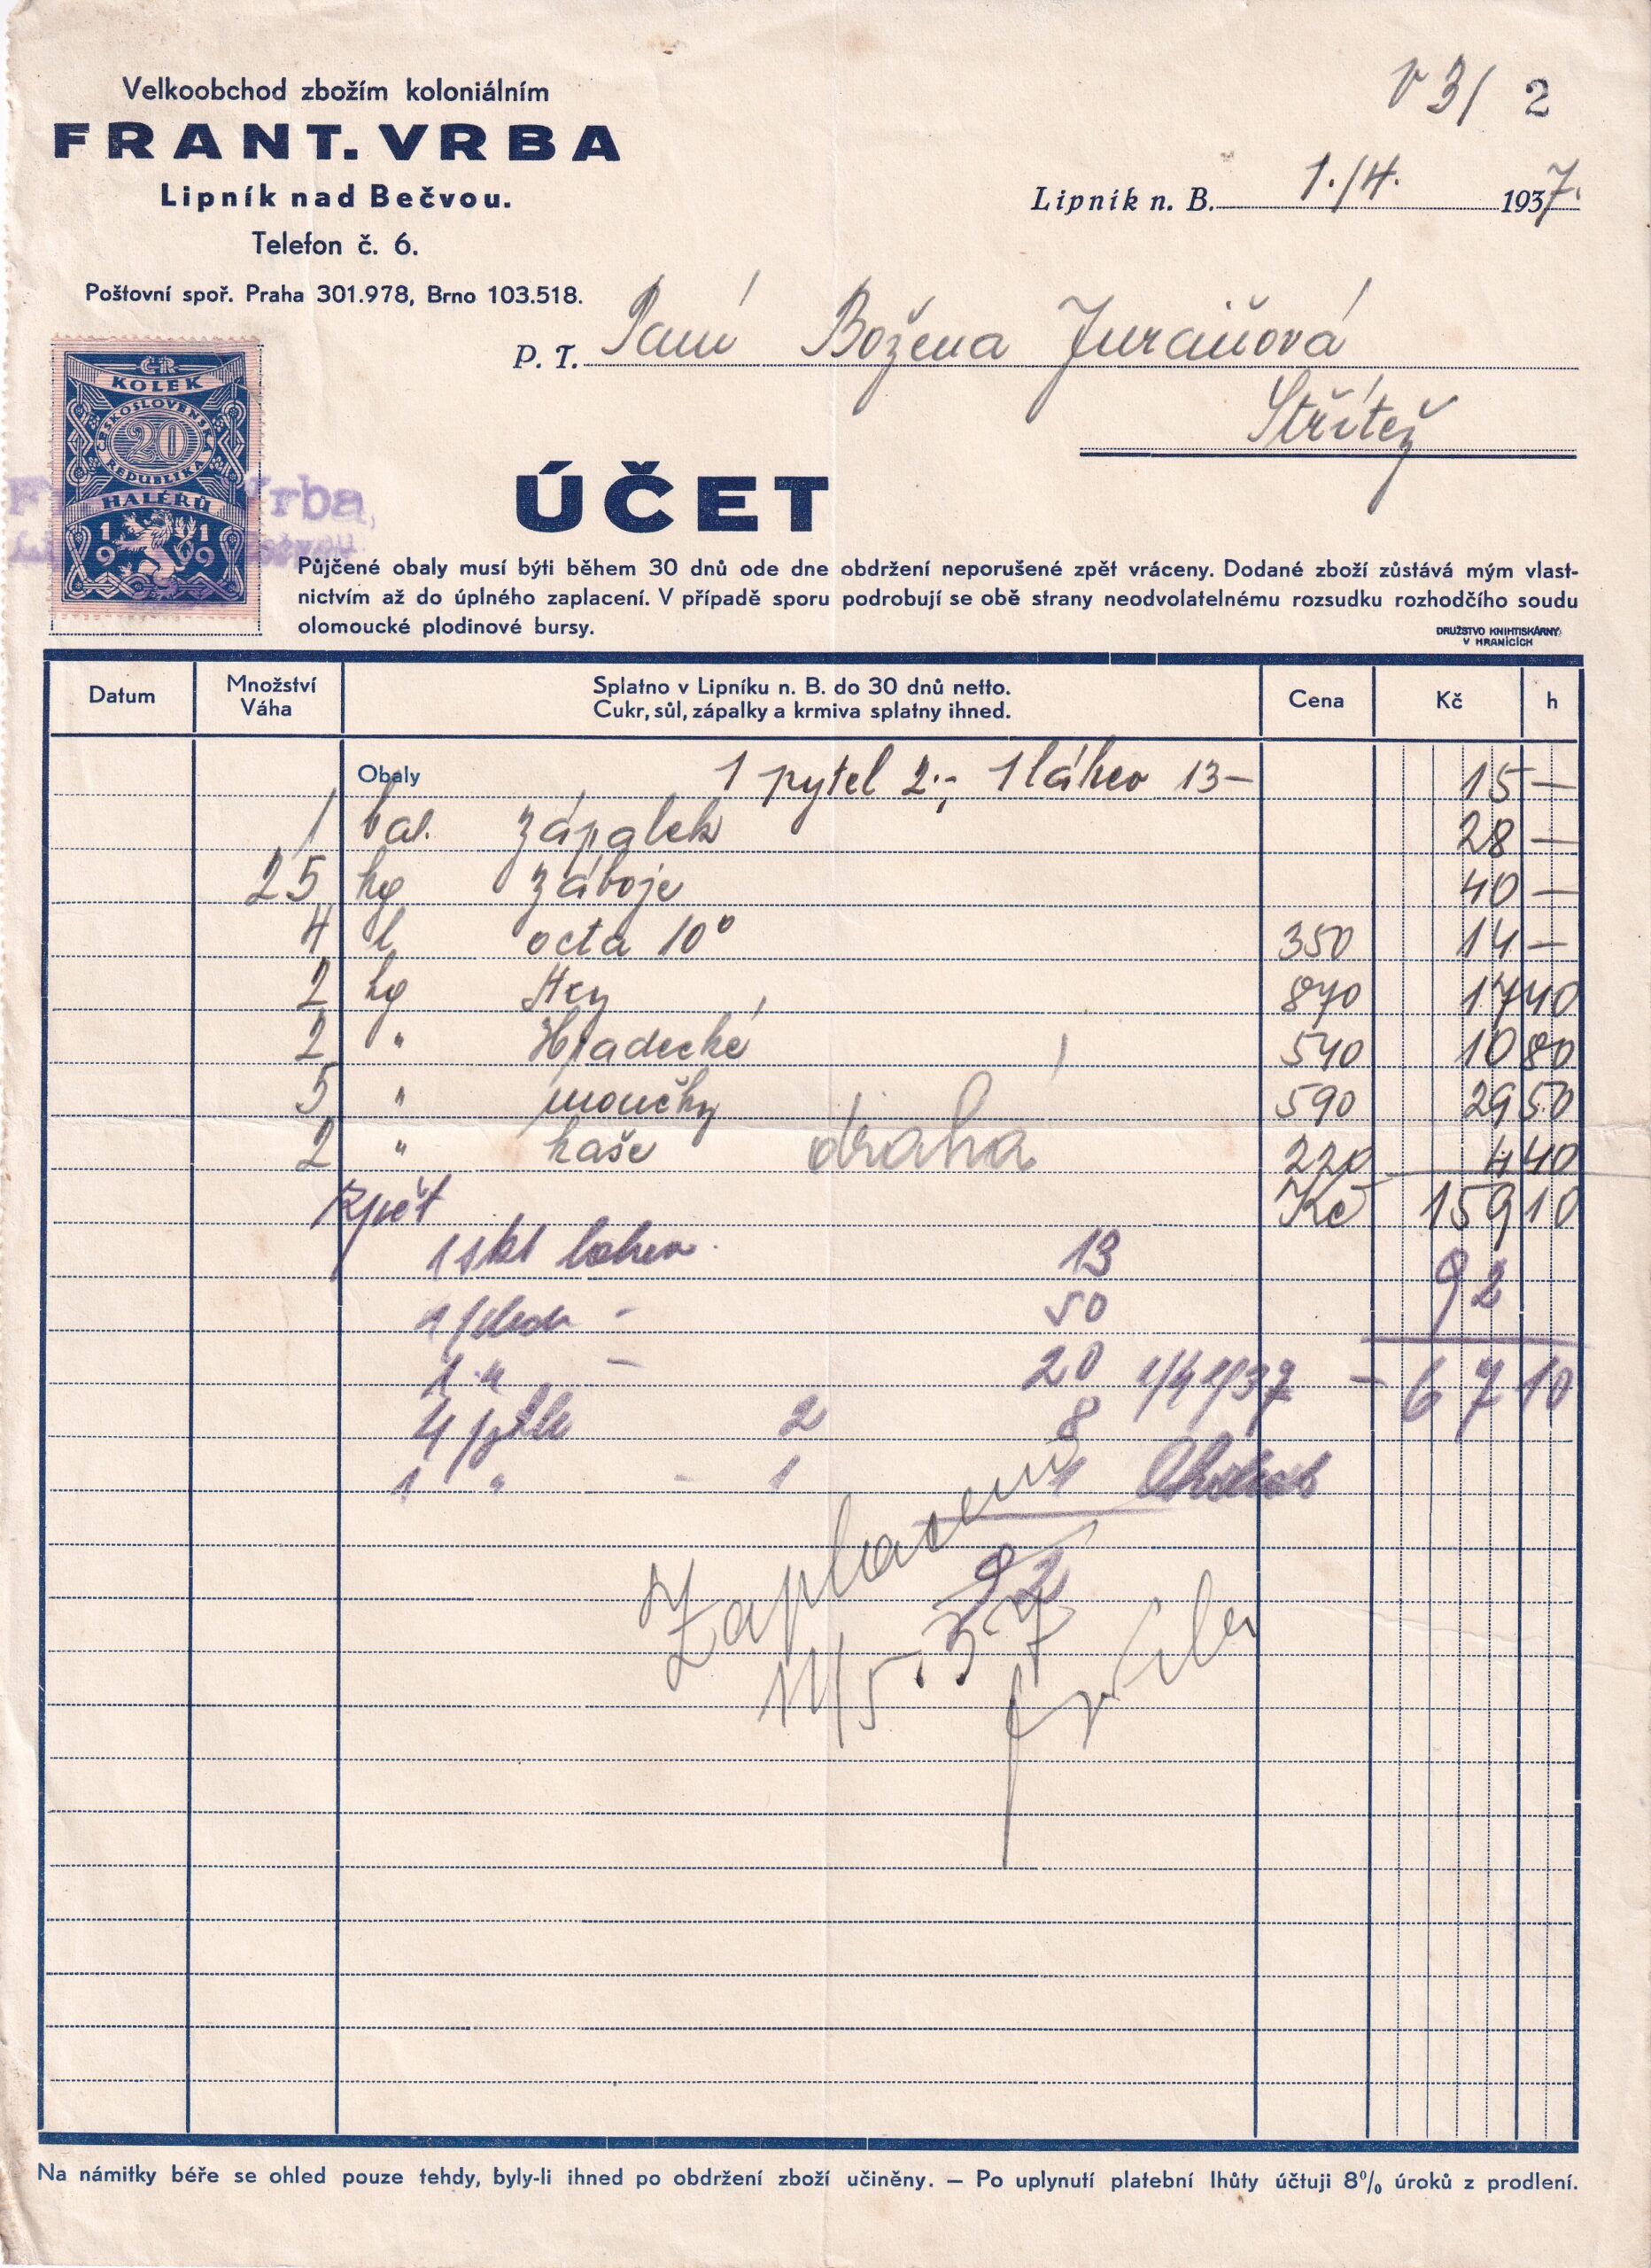 v 3/ 2
Velkoobchod zbožím koloniálním
FRANT. VRBA
Lipník nad Bečvou.
Telefon č. 6.
Poštovní spoř. Praha 301.978, Brno 103.518.
Lipník n. B. 1./4. 1937.
P. T. Paní Božena Juraňová
Střítež
ČR
KOLEK
ČESKOSLOVENSKÁ
20
REPUBLIKA
HALÉŘŮ
1919
Vrba,
ÚČET
Půjčené obaly musí býti během 30 dnů ode dne obdržení neporušené zpět vráceny. Dodané zboží zůstává mým vlast-
nictvím až do úplného zaplacení. V případě sporu podrobují se obě strany neodvolatelnému rozsudku rozhodčího soudu
olomoucké plodinové bursy.
DRUŽSTVO KNIHTISKÁRNY
V HRANICÍCH
Datum Množství Váha Splatno v Lipníku n. B. do 30 dnů netto. Cukr, sůl, zápalky a krmiva splatny ihned. Cena Kč h
Obaly 1 pytel 2.- 1 láhev 13- 15 —
1 bal. zápalek 28 —
25 kg záboje 40 —
4 l octa 10° 350 14 —
2 kg 870 17 40
2 " Hradecké 540 10 80
5 " moučky 590 29 50
2 " kaše drahá 220 4 40
Zpět Kč 159 10
1 skl lahev 13 92
1 50
1 " - 20 1/4 1937 - 67 10
4 pytle 2 8
1 " - 1 1
92
Zaplaceno
11/5. 37